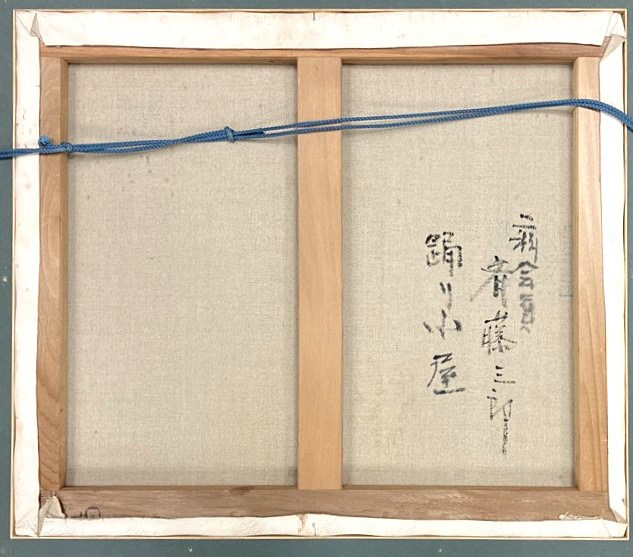 新会員
斉藤三郎
踊り小屋